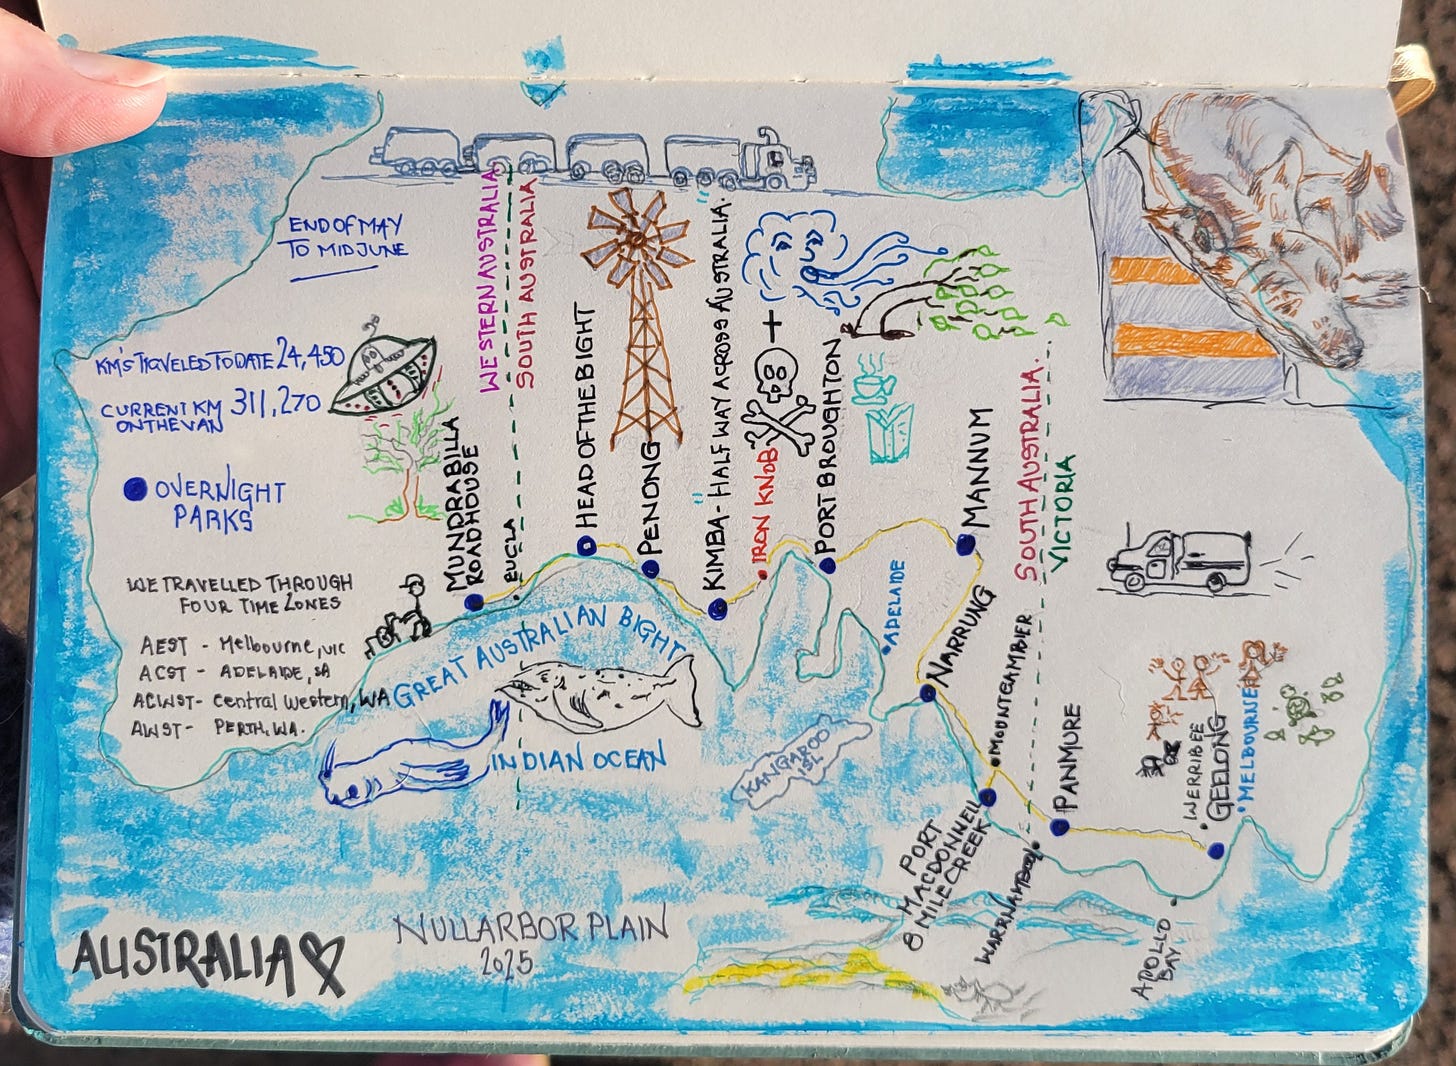 END OF MAY
TO MID JUNE
KM's TRAVELED TO DATE 24,450
CURRENT KM 311,270
ON THE VAN
OVERNIGHT
PARKS
WE TRAVELLED THROUGH
FOUR TIME ZONES
AEST - Melbourne, VIC
ACST - ADELAIDE, SA
ACWST - Central Western, WA
AWST - PERTH, WA.
WESTERN AUSTRALIA
SOUTH AUSTRALIA
MUNDRABILLA
ROADHOUSE
EUCLA
HEAD OF THE BIGHT
PENONG
KIMBA - "HALF WAY ACROSS AUSTRALIA."
IRON KNOB
+
PORT BROUGHTON
MANNUM
ADELAIDE
NARRUNG
SOUTH AUSTRALIA.
VICTORIA
MOUNT GAMBIER
PORT
MACDONNELL
8 MILE CREEK
PANMURE
WARRNAMBOOL
WERRIBEE
GEELONG
MELBOURNE
APOLLO
BAY
GREAT AUSTRALIAN BIGHT
INDIAN OCEAN
KANGAROO
ISL
NULLARBOR PLAIN
2025
AUSTRALIA